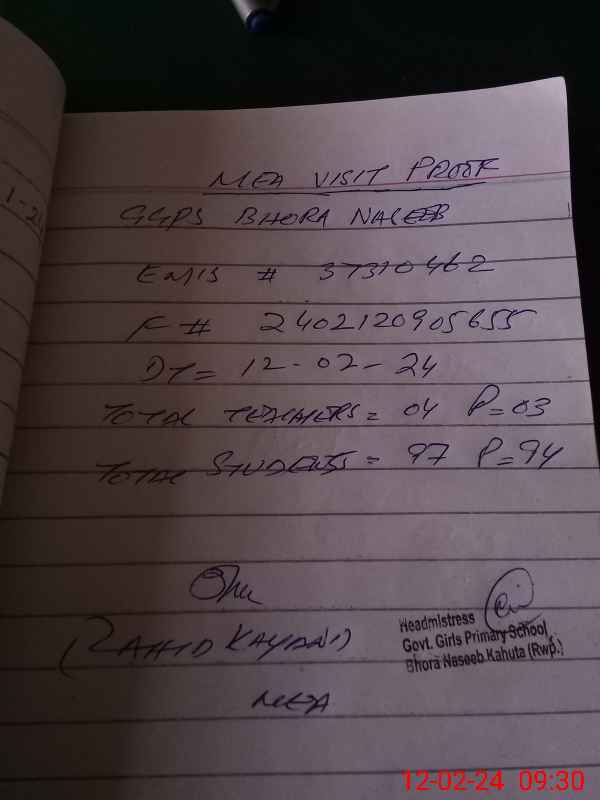 1-24
MEA VISIT PROOF
GGPS BHORA NASEEB
EMIS # 37310462
F # 2402120905655
DT = 12-02-24
TOTAL TEACHERS = 04 P=03
TOTAL STUDENTS = 97 P=94
KAYANI)
MEA
Headmistress
Govt. Girls Primary School
Bhora Naseeb Kahuta (Rwp.)
12-02-24 09:30